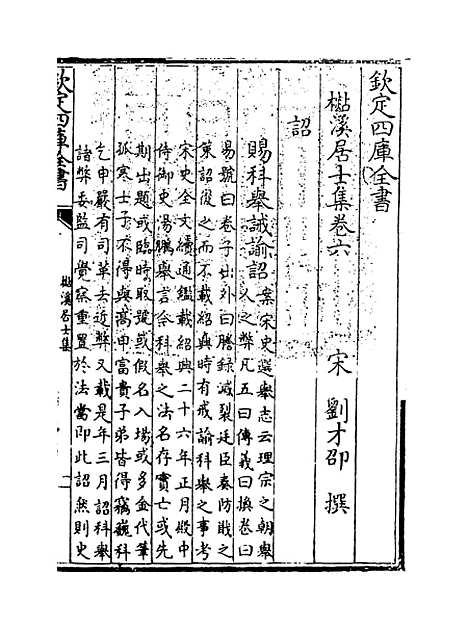 欽定四庫全書
檆溪居士集卷六 宋 劉才邵 撰
詔
賜科舉誡諭詔 案宋史選舉志云理宗之朝舉
人之弊凡五曰傳義曰換卷曰
易號曰卷子出外曰謄錄滅裂廷臣奏防戢之
策詔從之而不載紹興時有戒諭科舉之事考
宋史全文續通鑑載紹興二十六年正月殿中
侍御史湯鵬舉言今科舉之法名存實亡或先
期出題或臨時取號或假名入場或多金代筆
孤寒士子不得與高中富貴子弟皆得竊巍科
乞申嚴有司革去近弊又載是年三月詔科舉
諸弊委監司覺察重置於法當即此詔然則史
欽定四庫全書
檆溪居士集
一